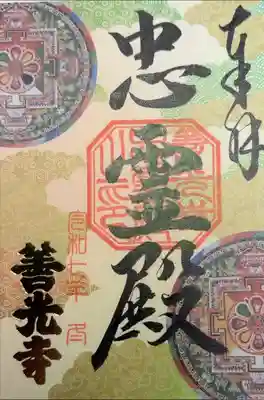 奉拝
忠霊殿
令和七年 月
善光寺